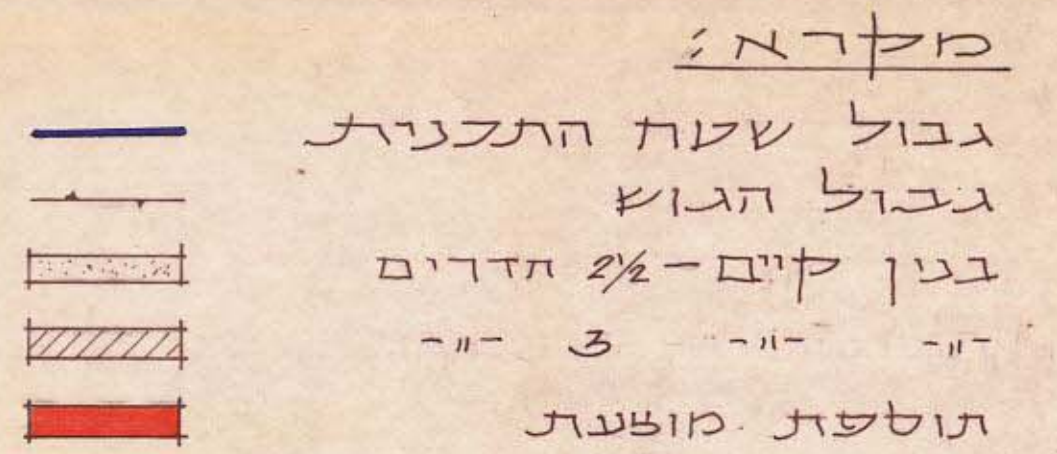 מקרא:
גבול שטח התכנית
גבול הגוש
בנין קיים – 2½ חדרים
-"- -"- 3 -"-
תוספת מוצעת